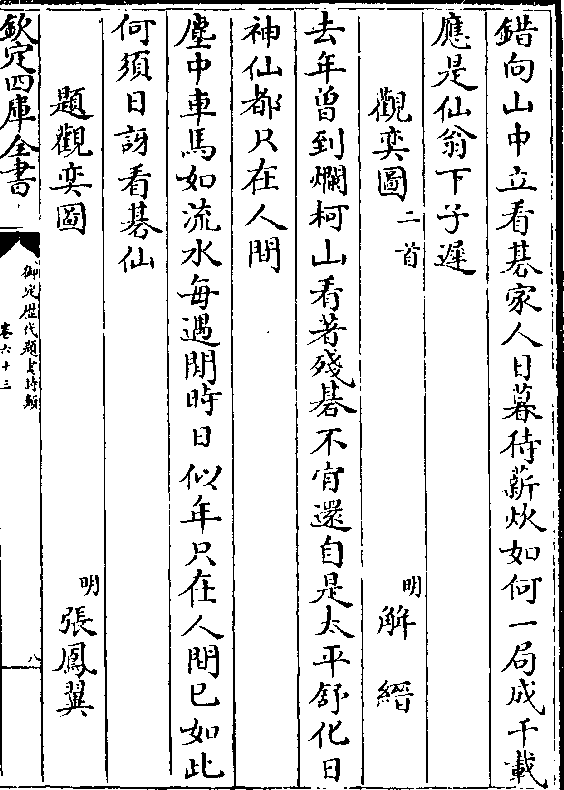 錯向山中立看棊家人日暮待薪炊如何一局成千載
應是仙翁下子遲
觀奕圖二首 明 解縉
去年曾到爛柯山看著殘棊不肯還自是太平舒化日
神仙都只在人間
塵中車馬如流水每遇閒時日似年只在人間已如此
何須日訝看棊仙
題觀奕圖 明 張鳳翼
欽定四庫全書
御定歷代題畫詩類
卷六十三
八